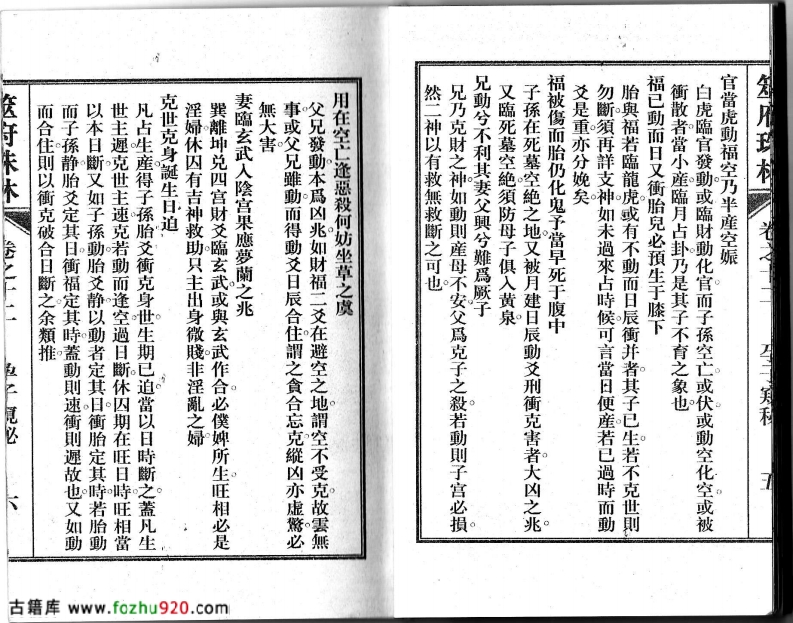 官當虎動福空乃半産空娠
白虎臨官發動或臨財動化官而子孫空亡或伏或動空化空或被
衝散者當小産臨月占卦乃是其子不育之象也
福已動而日又衝胎兒必預生于膝下
胎與福若臨龍虎或有不動而日辰衝并者其子已生若不克世則
勿斷須再詳支神如未過來占時候可言當日便産若已過時而動
爻是重亦分娩矣
福被傷而胎仍化鬼予當早死于腹中
子孫在死墓空絶之地又被月建日辰動爻刑衝克害者大凶之兆
又臨死墓空絶須防母子俱入黃泉
兄動兮不利其妻父興兮難爲厥子
兄乃克財之神如動則産母不安父爲克子之殺若動則子宫必損
然二神以有救無救斷之可也
五
用在空亡逢惡殺何妨坐草之虞
父兄發動本爲凶兆如財福二爻在避空之地謂空不受克故雲無
事或父兄雖動而得動爻日辰合住謂之貪合忘克縱凶亦虚驚必
無大害
妻臨玄武入陰宫果應夢蘭之兆
巽離坤兑四宫財爻臨玄武或與玄武作合必僕婢所生旺相必是
淫婦休囚有吉神救助只主出身微賤非淫亂之婦
克世克身誕生日迫
凡占生産得子孫胎爻衝克身世生期已迫當以日時斷之蓋凡生
世主遲克世主速克若動而逢空過日斷休囚期在旺日時旺相當
以本日斷又如子孫動胎爻静以動者定其日衝胎定其時若胎動
而子孫静胎爻定其日衝福定其時蓋動則速衝則遲故也又如動
而合住則以衝克破合日斷之余類推
筮府珠林
卷之十二
六
古籍库 www.fozhu920.com